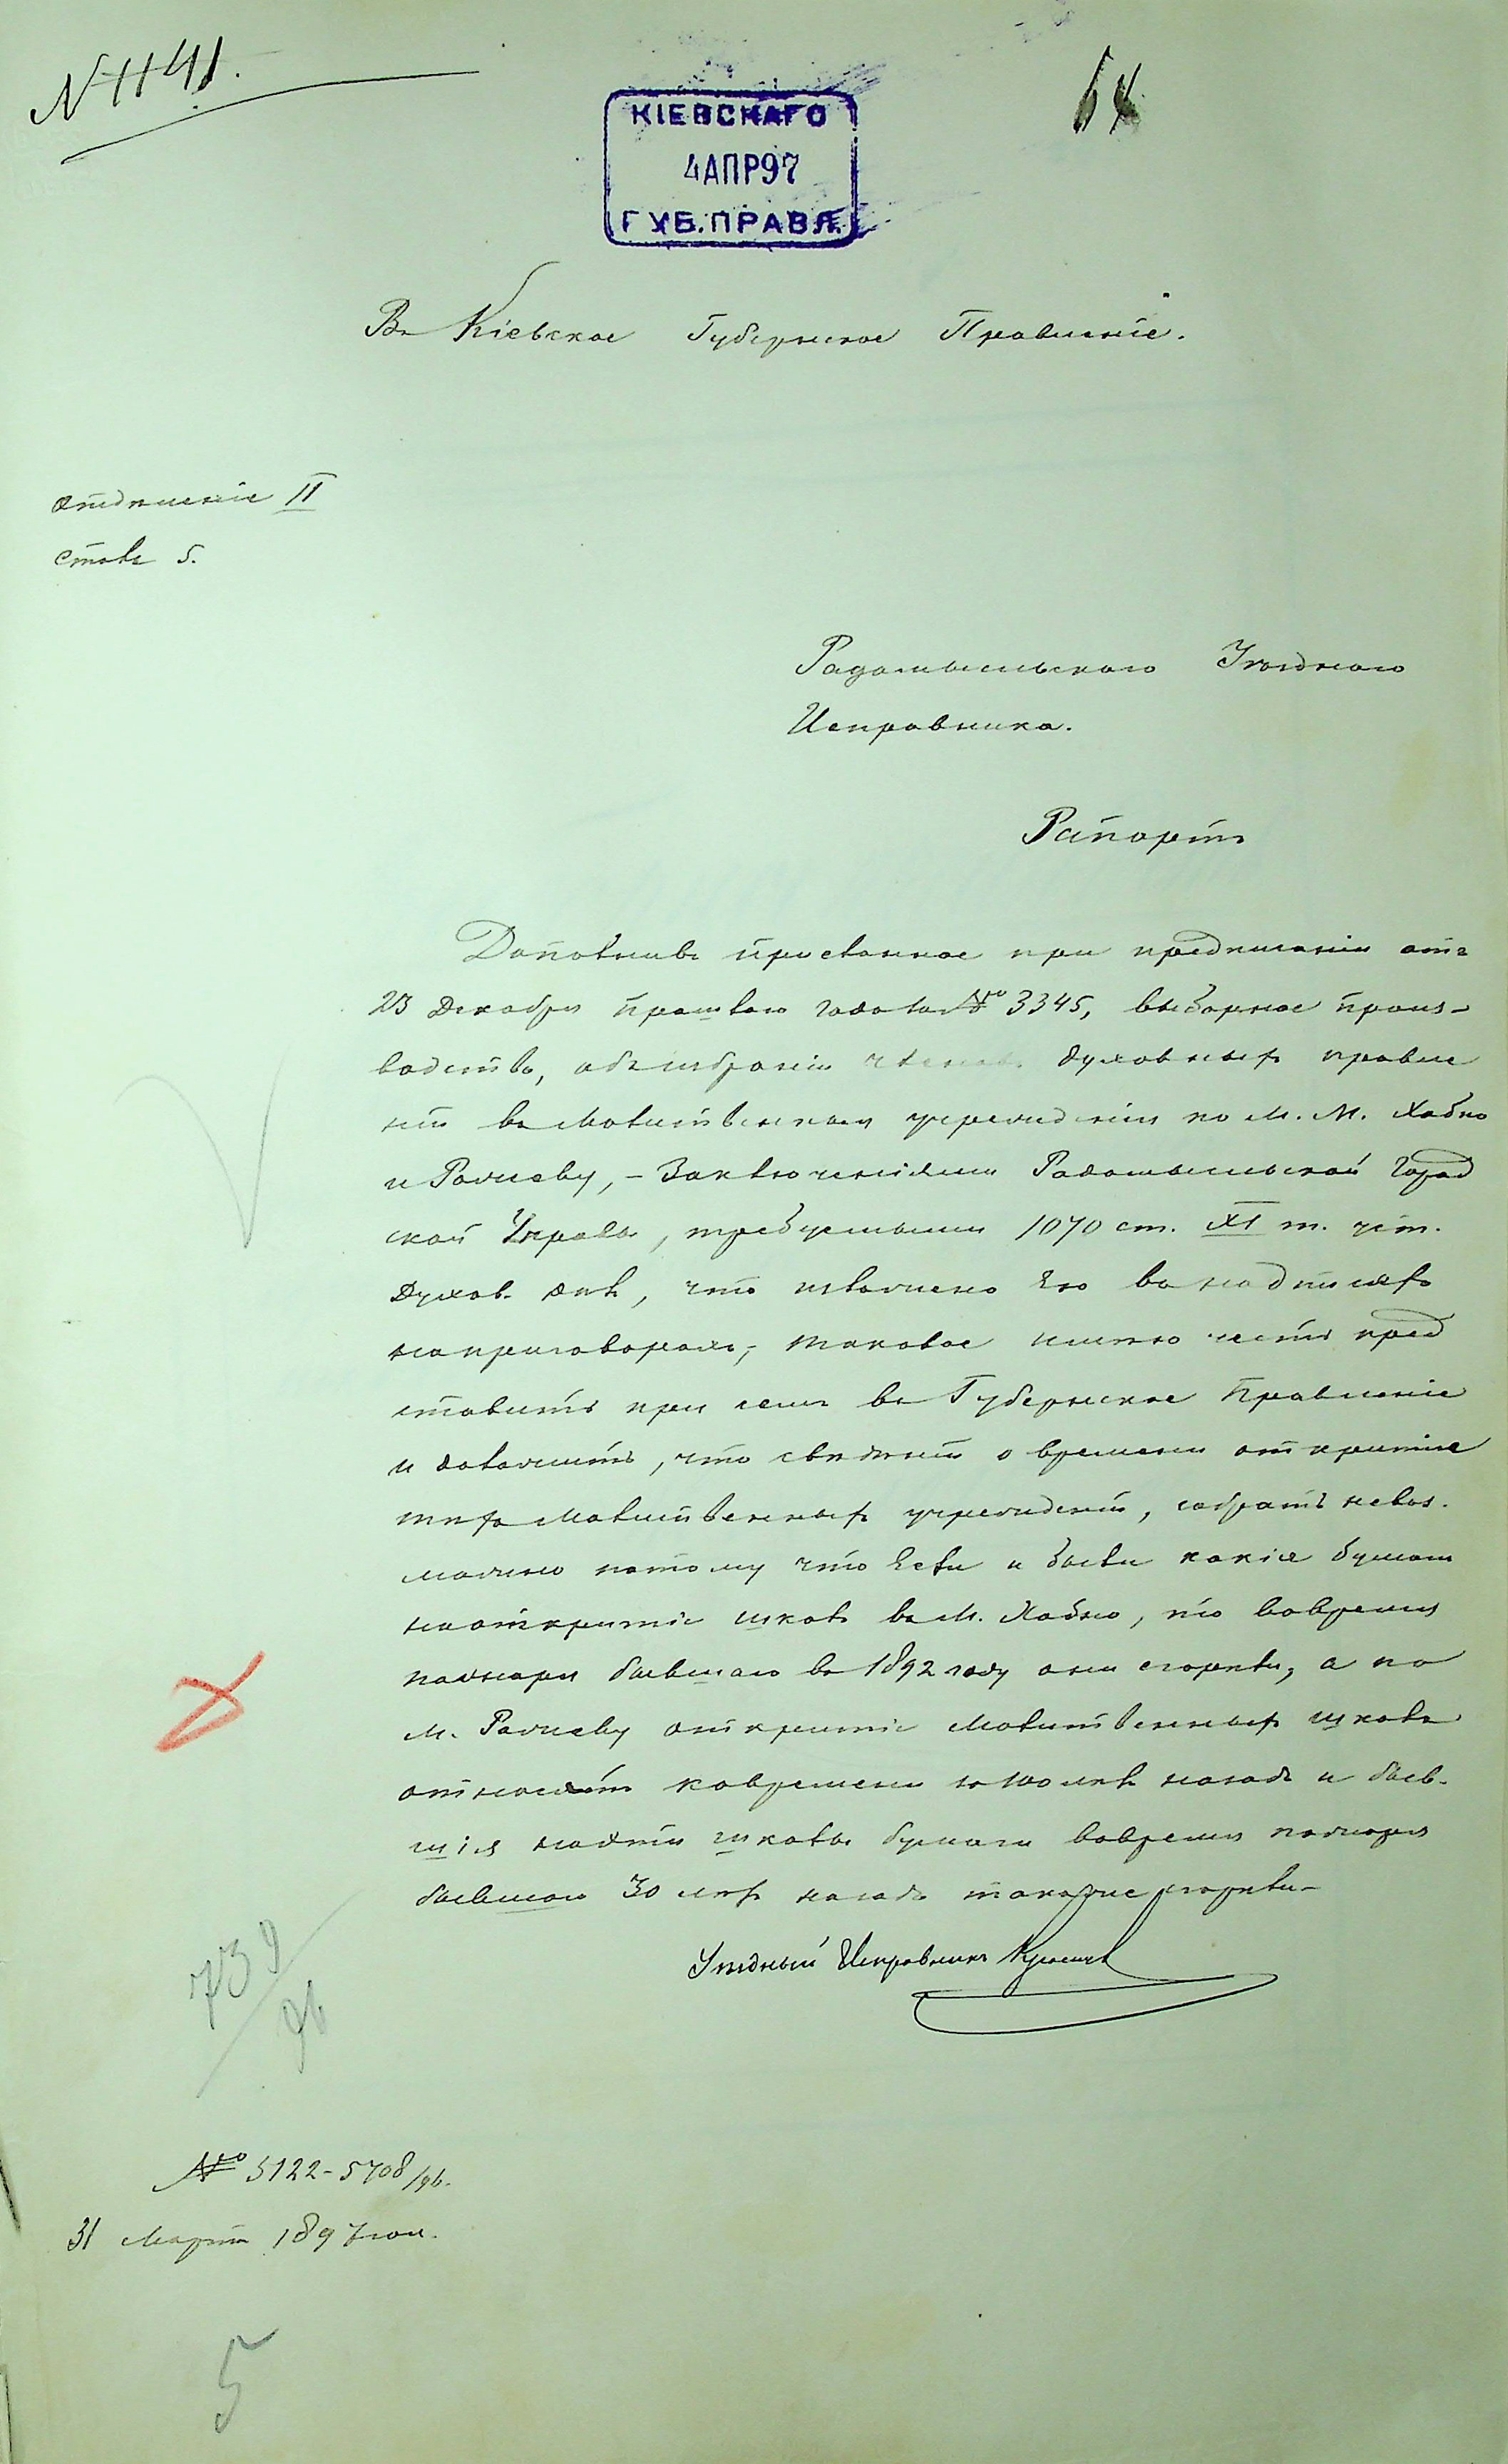 N 1141.
КІЕВСКАГО
4 АПР 97
ГУБ. ПРАВЛ.
Въ Кіевское Губернское Правленіе.
Отдѣленіе II
Столъ 5.
Радомысльскаго Уѣзднаго
Исправника.
Рапортъ
Дополнивъ присланное при предписаніи отъ
23 Декабря прошлаго года за № 3345, выборное произ-
водство, объ избраніи членовъ духовныхъ правле
ній въ молитвенныя учрежденія по м. м. Хабно
и Рожеву, - Заключеніями Радомысльской Город
ской Управы, требуемыми 1070 ст. XI т. уст.
Духов. дѣлъ, что изложено Ею въ надписяхъ
на приговорахъ, таковое имѣю честь пред
ставить при семъ въ Губернское Правленіе
и доложить, что свѣдѣній о времени открытія
тѣхъ молитвенныхъ учрежденій, собрать невоз-
можно потому что Если и были какія бумаги
на открытіе школъ въ м. Хабно, то во время
пожара бывшаго въ 1892 году они сгорѣли, а по
м. Рожеву открытіе молитвенныхъ школъ
относятъ ко времени лѣтъ назадъ и быв-
шія на эти школы бумаги во время пожара
бывшаго 30 лѣтъ назадъ также сгорѣли.
Уѣздный Исправникъ
739/96
№ 5122-5708/96.
31 Марта 1897 года.
5